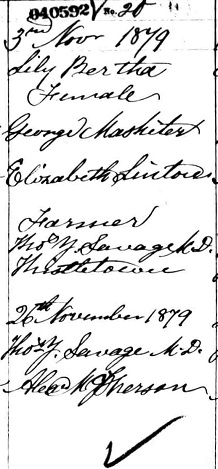 040592 No. 20
3rd Novr 1879
Lily Bertha
Female
George Maskiter
Elizabeth Linton
Farmer
Thos Y. Savage M.D.
Thistletown
26th November 1879
Thos Y. Savage M.D.
Alex McPherson